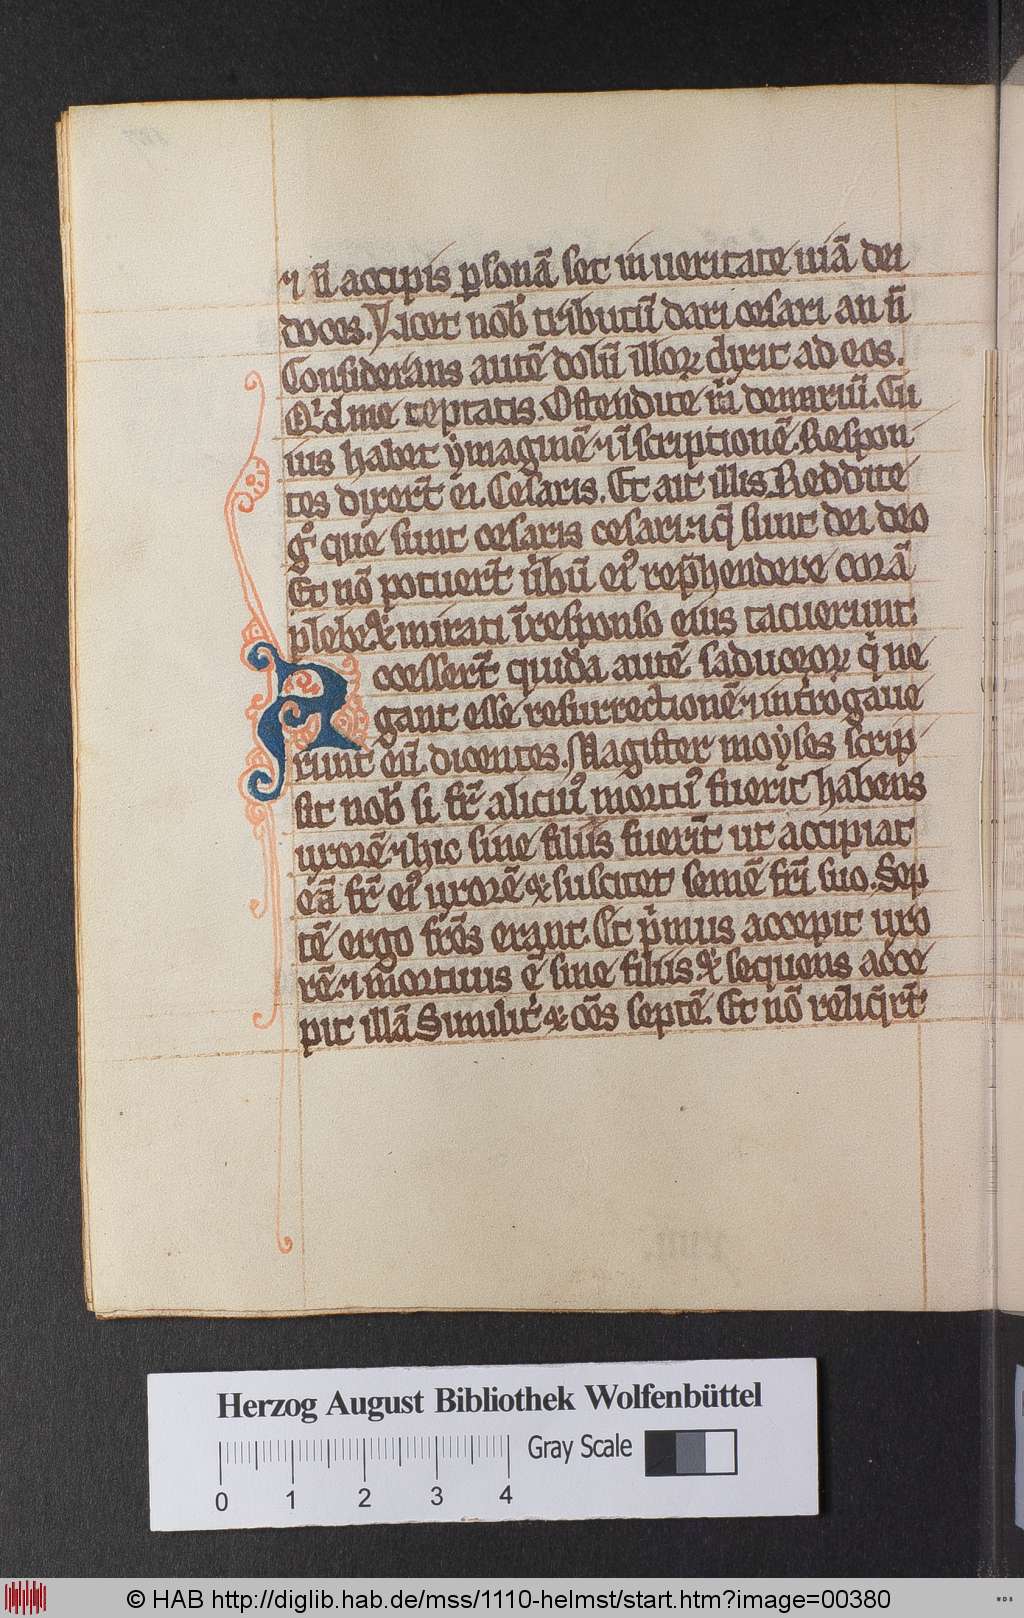 ⁊ n̄ accipis ꝑsonā set in ueritate uiā dei
doces. Licet nob̄ tributū dari cesari an n̄
Considerans autē dolū illoꝝ dixit ad eos.
Qͥd me teptatis. Ostendite m̄ denariū. Cu
ius habet ymaginē ⁊ īscriptionē. Respon
tes dixert̄ ei. Cesaris. Et ait illis Reddite
gͦ que sunt cesaris cesari ⁊ q̄ sunt dei deo
Et nō potuert̄ ūbū eiꝰ rep̄hendere corā
plebe ⁊ mirati ī responso eius tacuerunt.
Accessert̄ quidā autē saduceoꝝ qͥ ne
gant esse resurrectionē ⁊ intͬogaue
runt eū dicentes. Magister moyses scrip
sit nob̄ si fr̄ alicuiꝰ mortuꝰ fuerit habens
uxorē ⁊ hic sine filiis fuerit ut accipiat
eā fr̄ eiꝰ uxorē ⁊ suscitet semē fr̄i suo. Sep
tē ergo fr̄es erant. Et pͥmus accepit uxo
rē ⁊ mortuus ē sine filiis ⁊ sequens acce
pit illā Similit̄ ⁊ oēs septē. Et nō reliq̄rt̄
Herzog August Bibliothek Wolfenbüttel
Gray Scale
0 1 2 3 4
© HAB http://diglib.hab.de/mss/1110-helmst/start.htm?image=00380